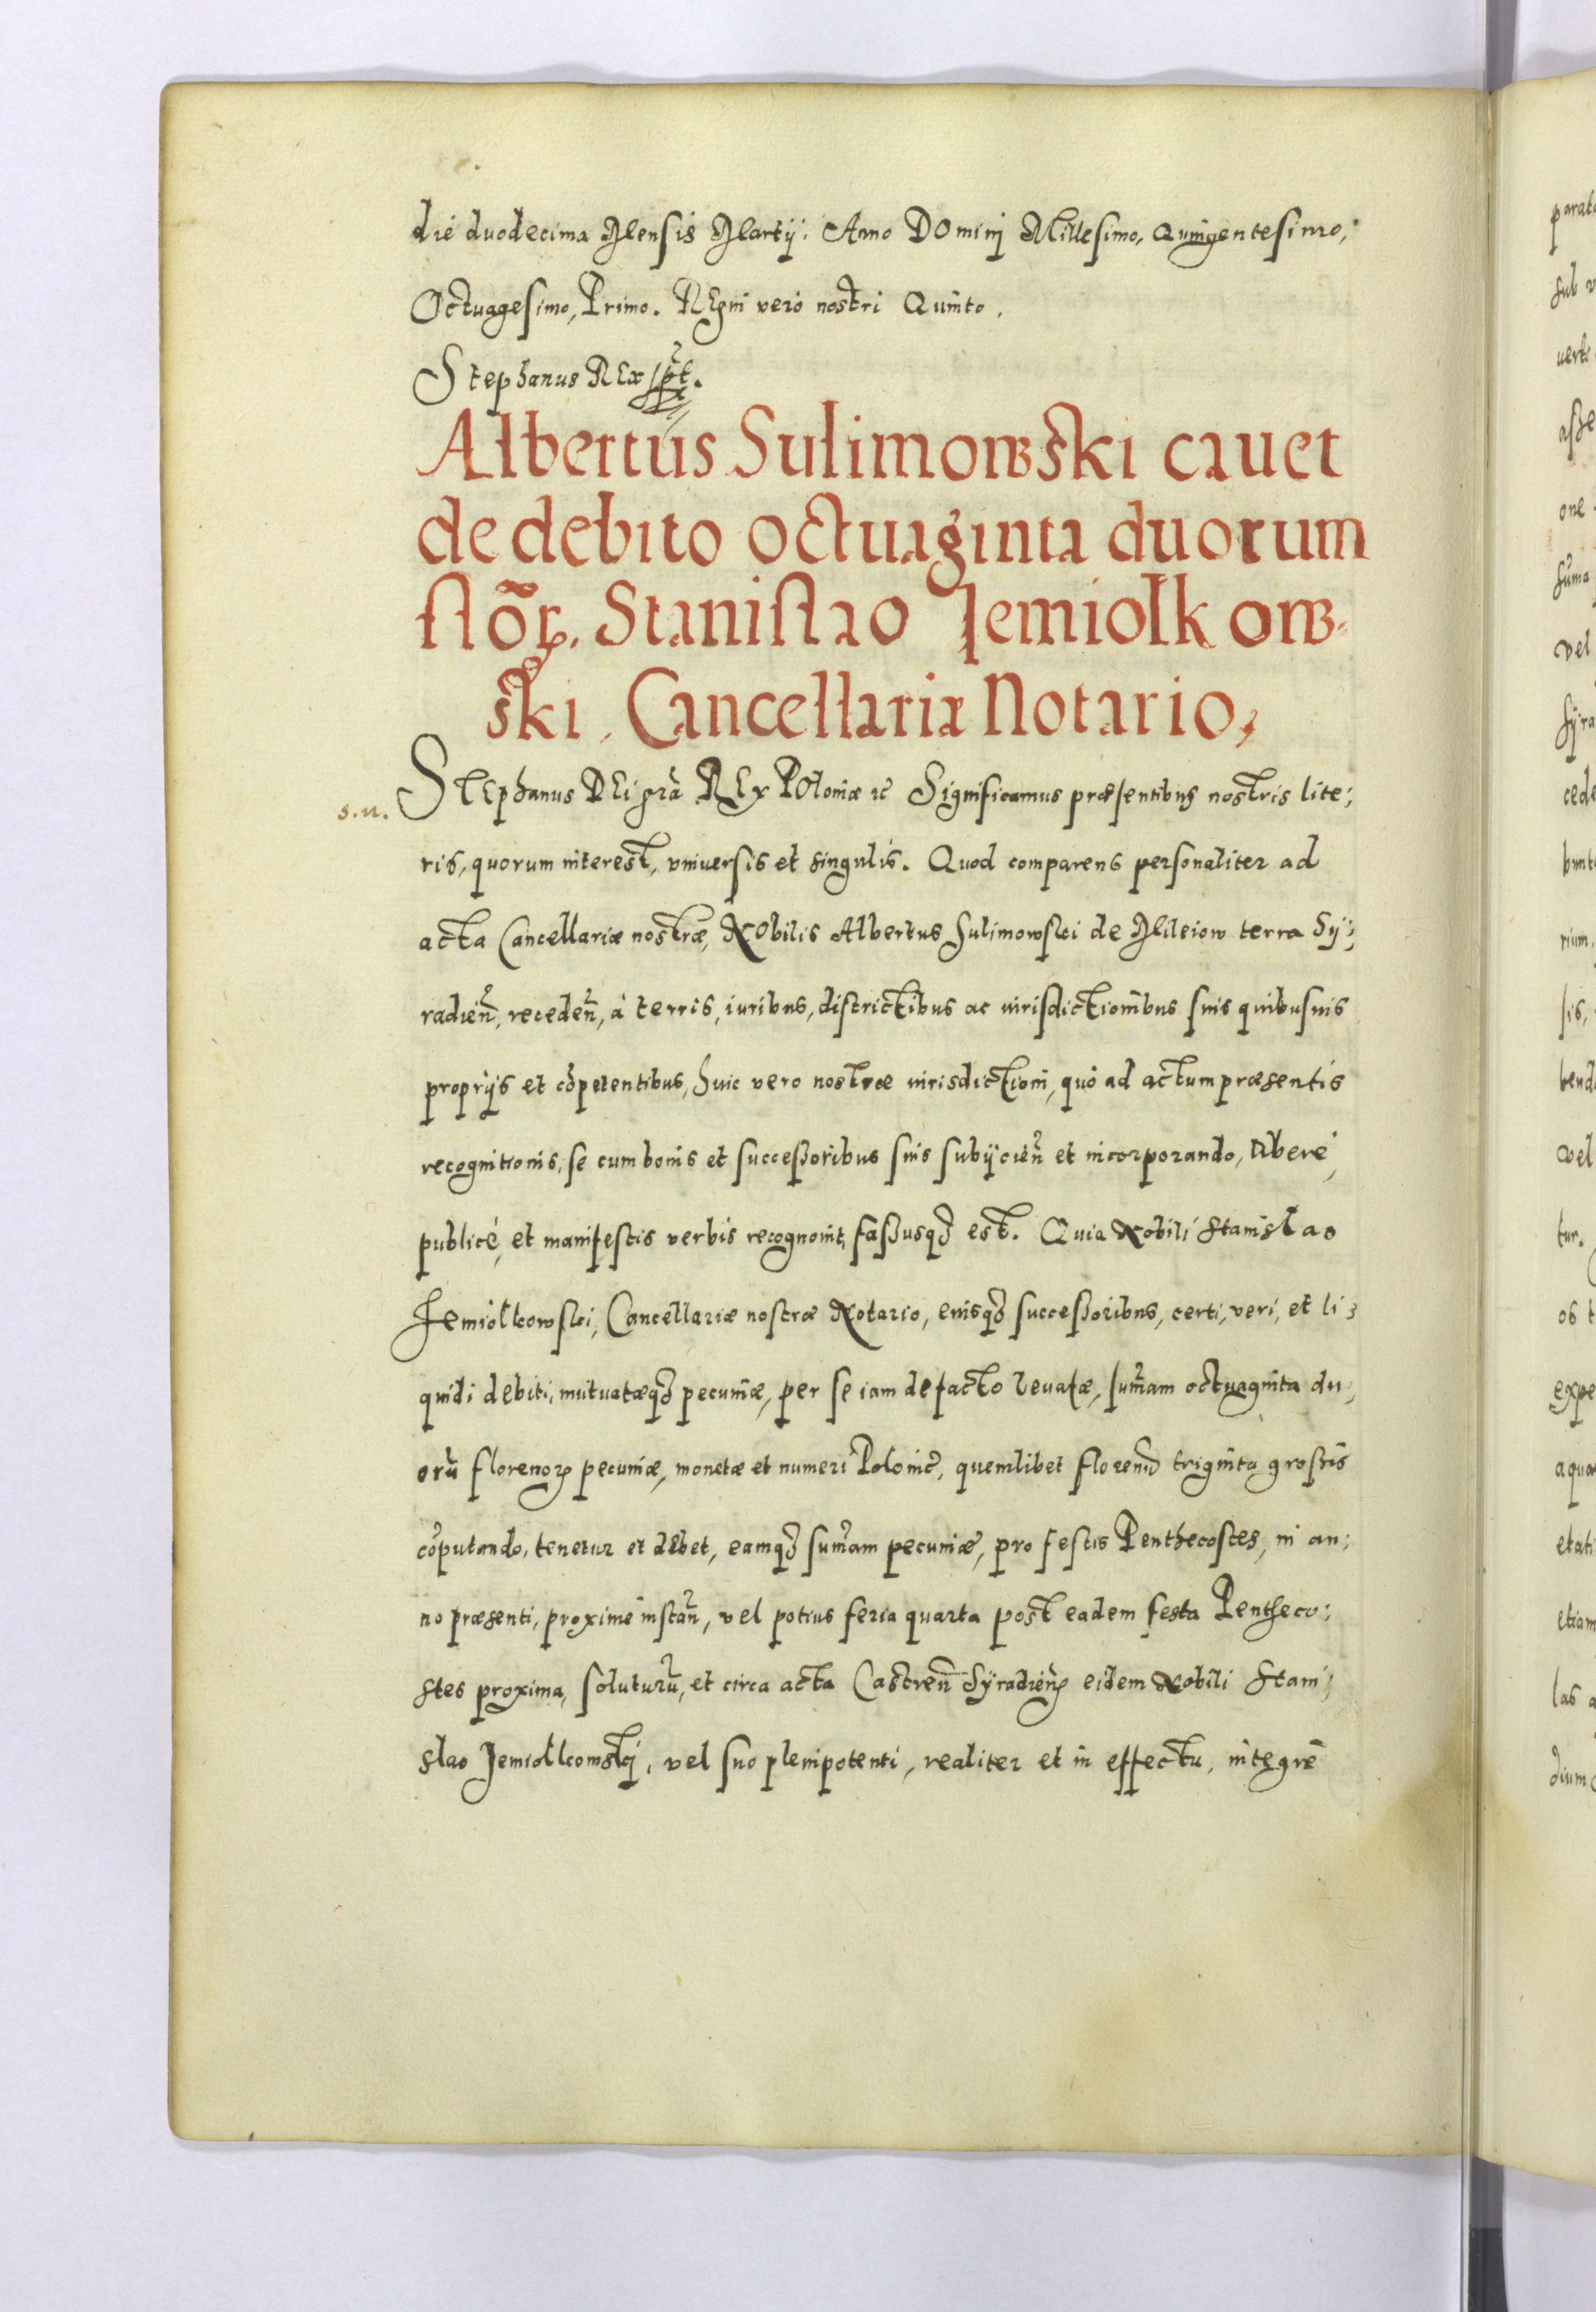 die duodecima Mensis Martij. Anno DOminj Millesimo, Quingentesimo,
Octuagesimo, Primo. REgni vero nostri Quinto.
Stephanus REx sspt.
Albertus Sulimowski cauet
de debito octuaginta duorum
flõꝝ. Stanislao Jemiołkow-
ski, Cancellariæ Notario,
s.n.
STEphanus DEi grã REx POloniæ ꝛc̃ Significamus præsentibus nostris lite:
ris, quorum interest, vniuersis et singulis. Quod comparens personaliter ad
acta Cancellariæ nostræ, NObilis Albertus Sulimowski de Mileiow terra Sy:
radieñ, recedeñ, à terris, iuribus, districtibus ac iurisdictionibus suis quibusuis
proprijs et cõpetentibus, huic vero nostræ iurisdictioni, quò ad actum præsentis
recognitionis, se cum bonis et successoribus suis subijcieñ et incorporando, liberè,
publicè, et manifestis verbis recognouit, fassusqȝ est. Quia Nobili Stanislao
Jemiołkowski, Cancellariæ nostræ Notario, eiusqȝ successoribus, certi, veri, et li:
quidi debiti, mutuatæqȝ pecuniæ, per se iam de facto leuatæ, sum̃am octuaginta du:
orũ florenoꝝ pecuniæ, monetæ et numeri Polonic̃, quemlibet florenũ triginta grossis
cõputando, tenetur et debet, eamqȝ sum̃am pecuniæ, pro festis Penthecostes, in an:
no præsenti, proximè instañ, vel potius feria quarta post eadem festa Pentheco:
stes proxima, soluturũ, et circa acta Castreñ Syradieñ eidem Nobili Stani:
slao Jemiołkowskj, vel suo plenipotenti, realiter et in effectu, integrè